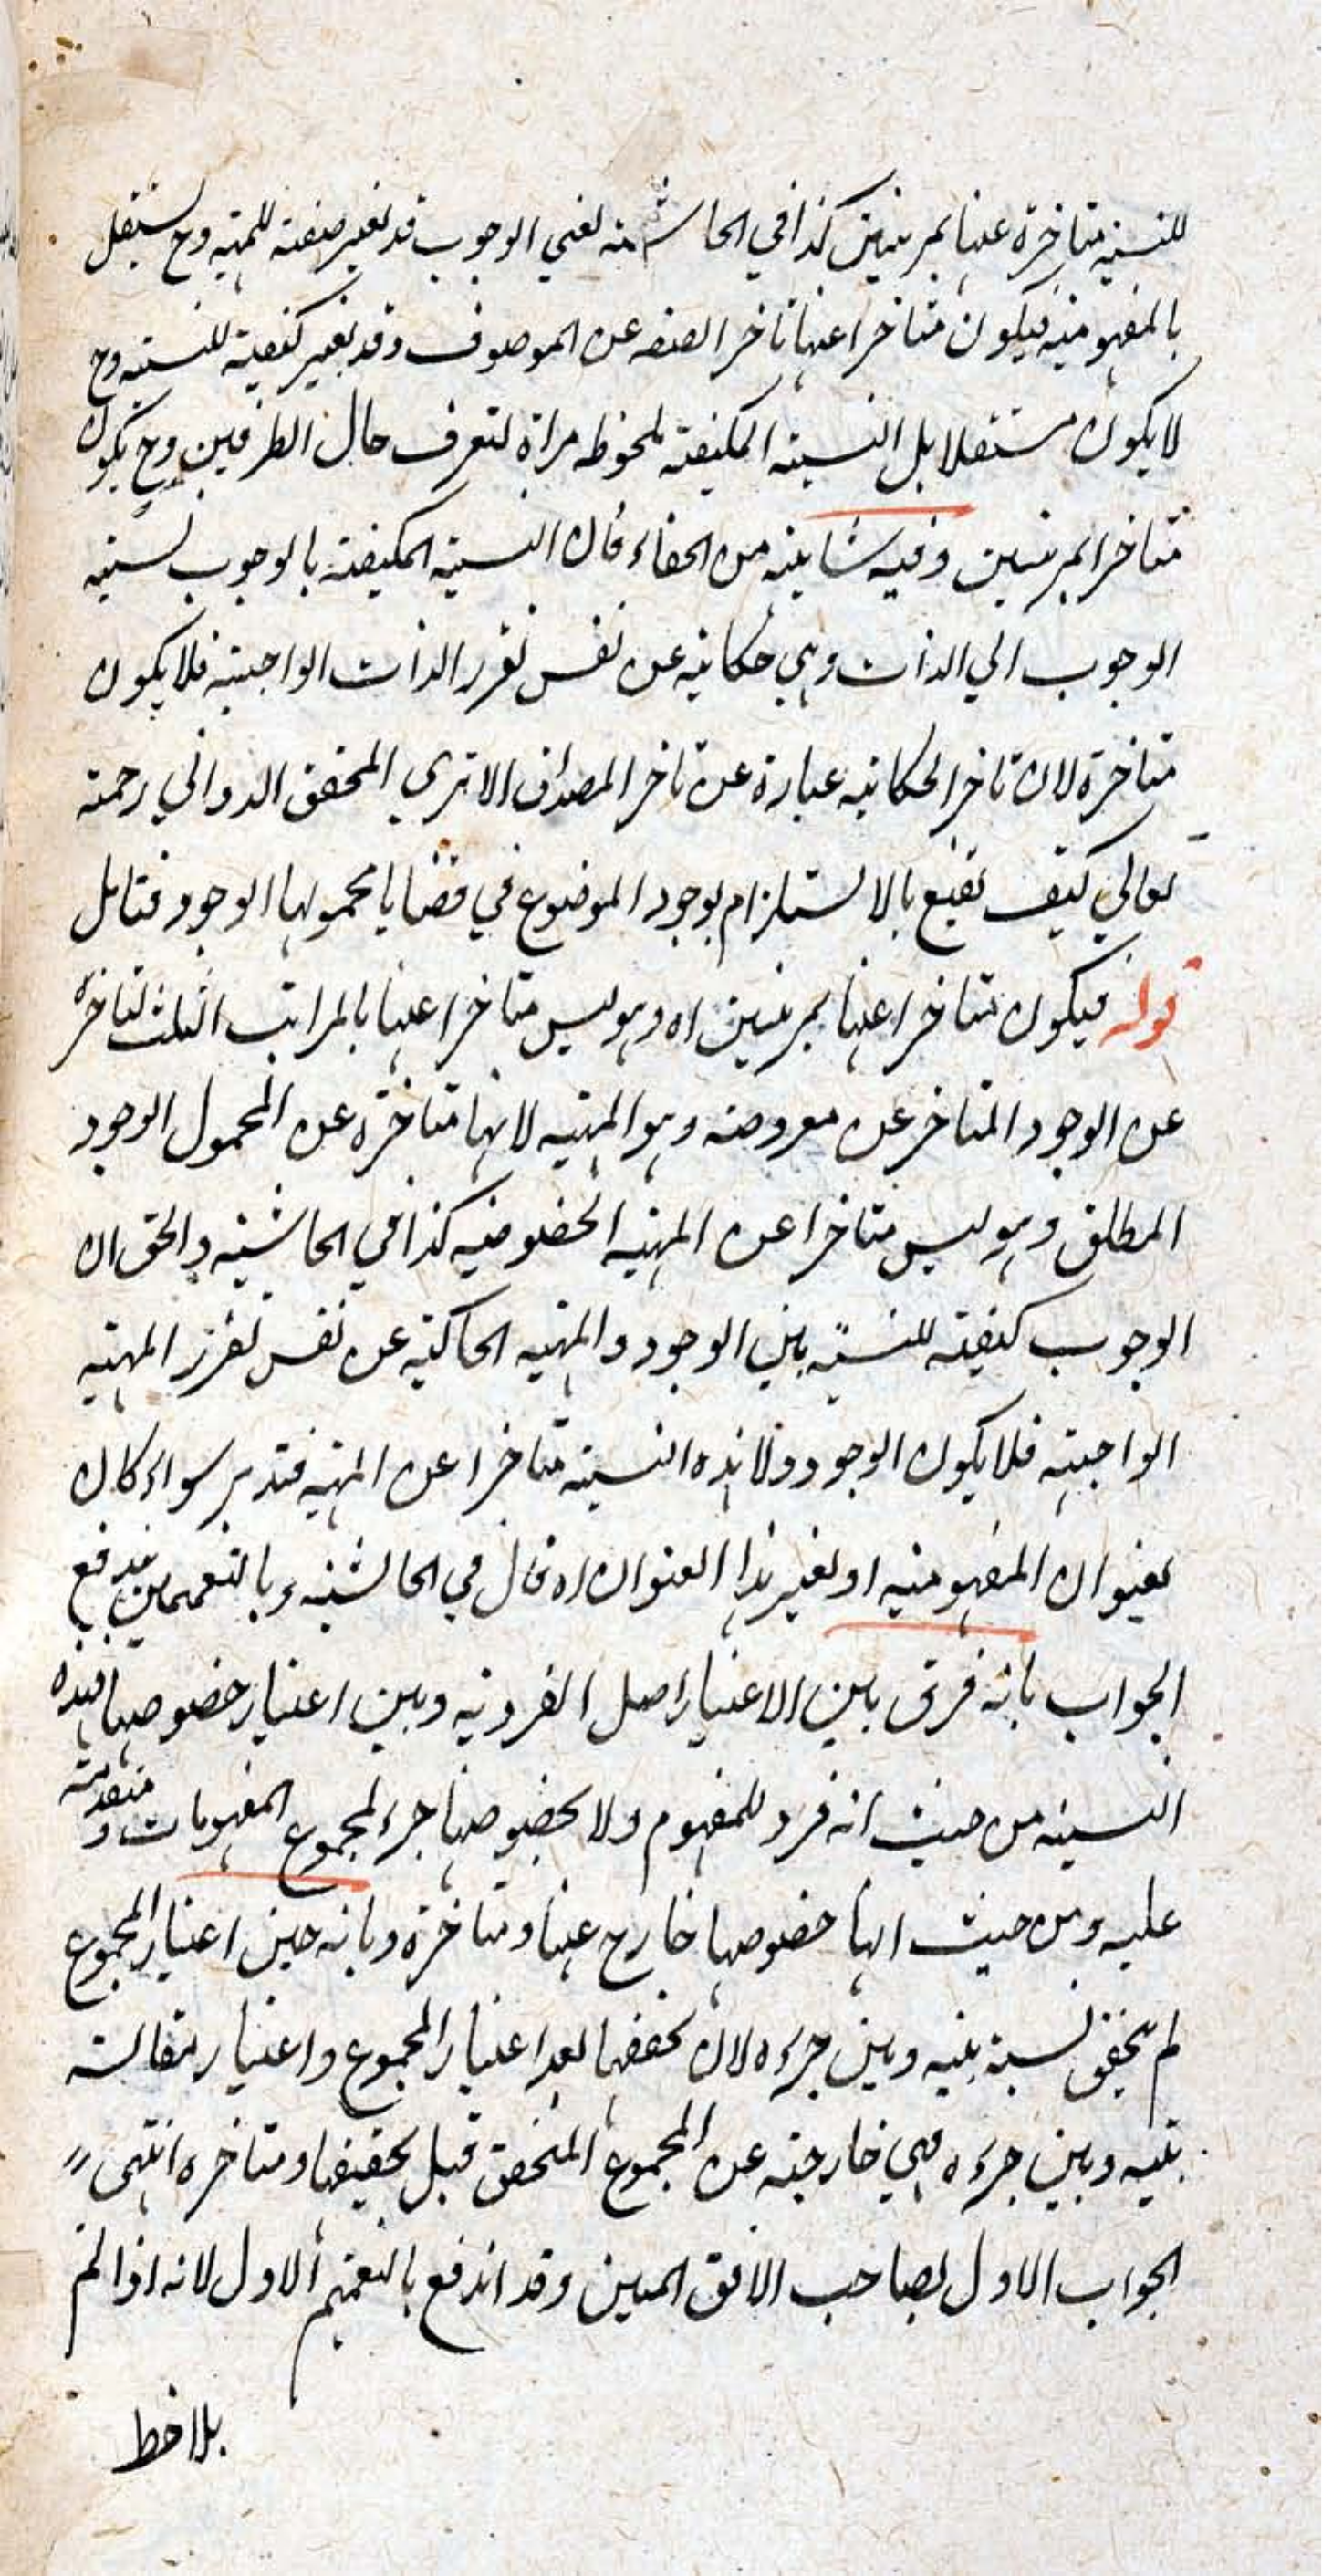 للنسبة متاخرة عنها بمرتبتين كذا في الحاشية منه يعني الوجوب قد يعتبر صفته للمهية وح يستقل
بالمفهومية فيكون متاخرا عنها تاخر الصفه عن الموصوف وقد يعتبر كيفية للنسبة وح
لا يكون مستقلا بل النسبة المكيفة ملحوظه مراة لتعرف حال الطرفين وح يكون
متاخرا بمرتبتين وفيه شايبة من الخفاء فان النسبة المكيفة بالوجوب نسبة
الوجوب الي الذات وهي حكاية عن نفس تقرر الذات الواجبة فلا يكون
متاخرة لان تاخر الحكاية عبارة عن تاخر المصداق الا تري المحقق الدواني رحمه
تعالي كيف يقنع بالاستلزام بوجود الموضوع في قضايا محمولها الوجود فتامل
قوله فيكون متاخرا عنها بمرتبتين اه وهو ليس متاخرا عنها بالمراتب الثلث لتاخره
عن الوجود المتاخر عن معروضه وهو المهية لانها متاخرة عن المحمول الوجود
المطلق وهو ليس متاخرا عن المهية الخصوصية كذا في الحاشية والحق ان
الوجوب كيفية للنسبة بين الوجود والمهية الحاكية عن نفس تقرر المهية
الواجبة فلا يكون الوجود ولا هذه النسبة متاخرا عن المهية فتدبر سواء كان
بعنوان المفهومية او بغير هذا العنوان اه قال في الحاشية وبالتعميمين يندفع
الجواب بانه فرق بين الاعتبار اصل الفردية وبين اعتبار خصوصها فهذه
النسبة من حيث انه فرد للمفهوم ولا بخصوصها جزء لمجموع المفهومات و متقدمة
عليه ومن حيث انها خصوصها خارج عنها ومتاخرة وبانه حين اعتبار المجموع
لم يتحقق نسبة بينه وبين جزءه لان تحققها بعد اعتبار المجموع واعتبار مقالسة
بينه وبين جزءه فهي خارجة عن المجموع المتحقق قبل تحقيقها ومتاخره انتهى
الجواب الاول لصاحب الافق المبين وقد اندفع بالتعميم الاول لانه اذا لم
يلاحظ